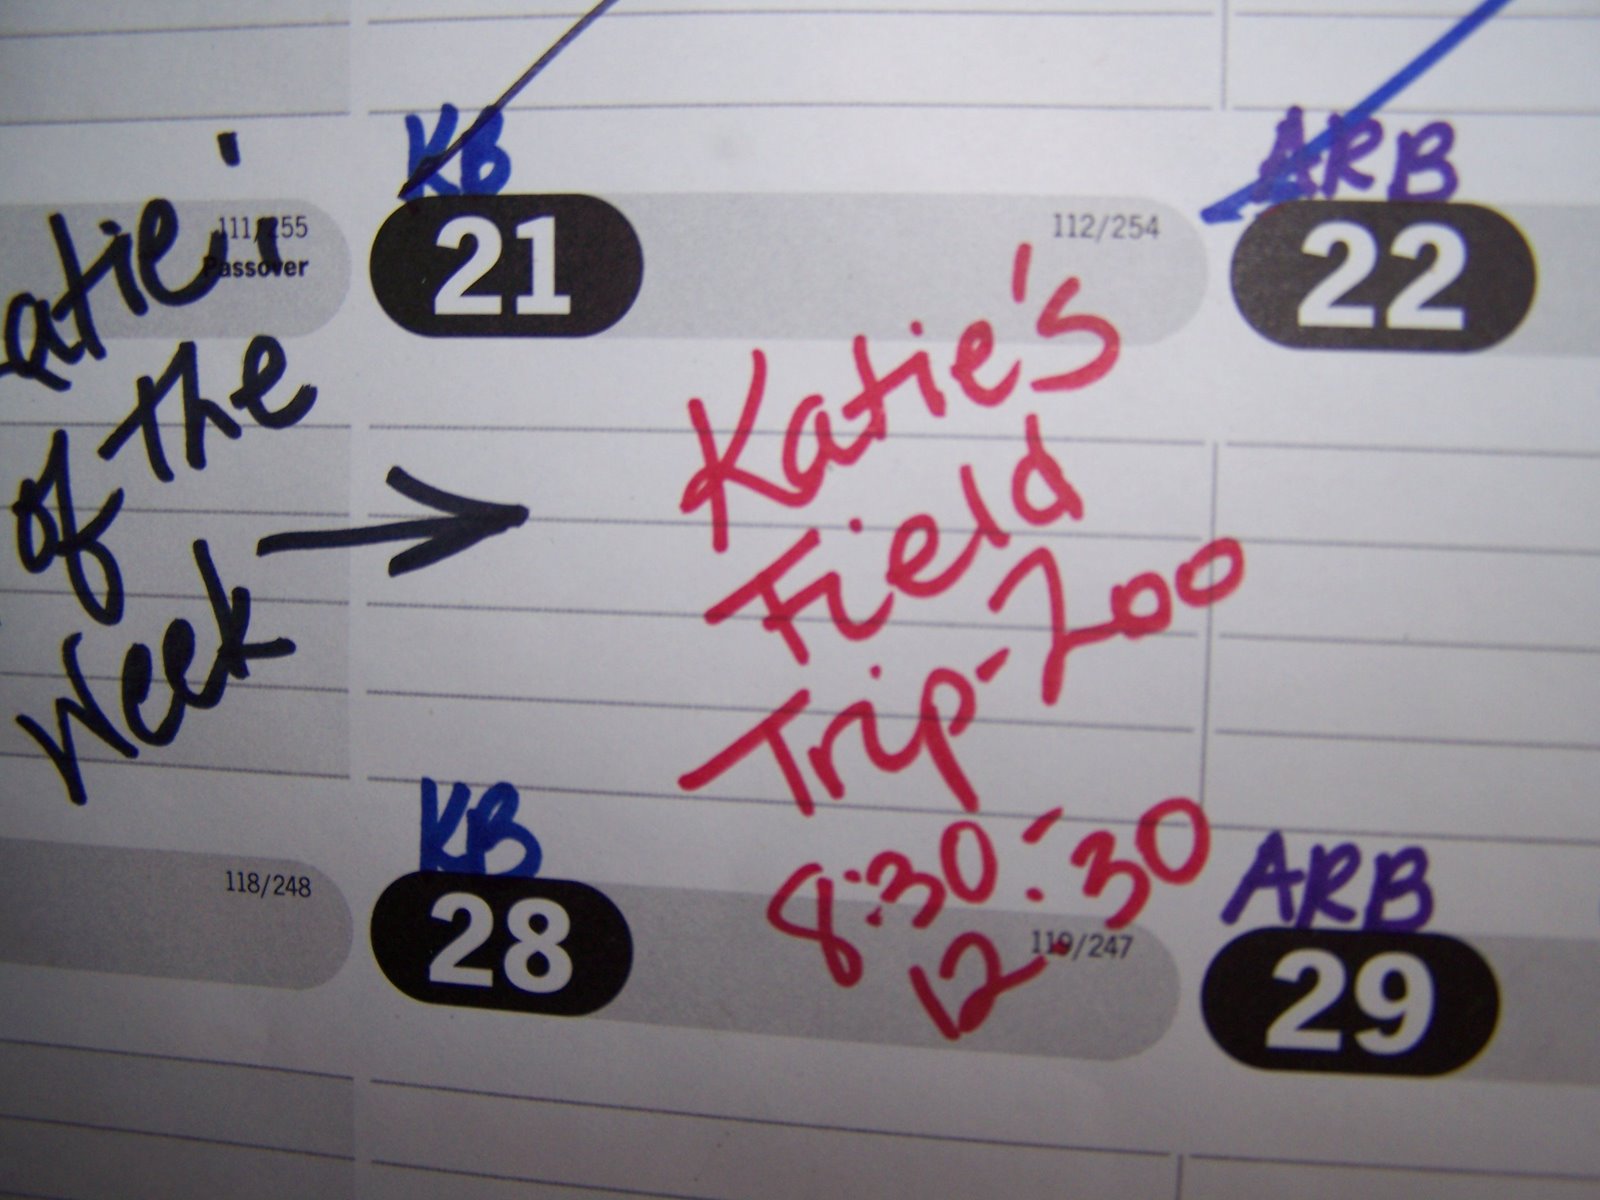 KB
ARB
111/255
Passover
21
112/254
22
atie'
of the
Week
Katie's
Field
Trip-Zoo
8:30-
12:30
KB
ARB
118/248
28
119/247
29